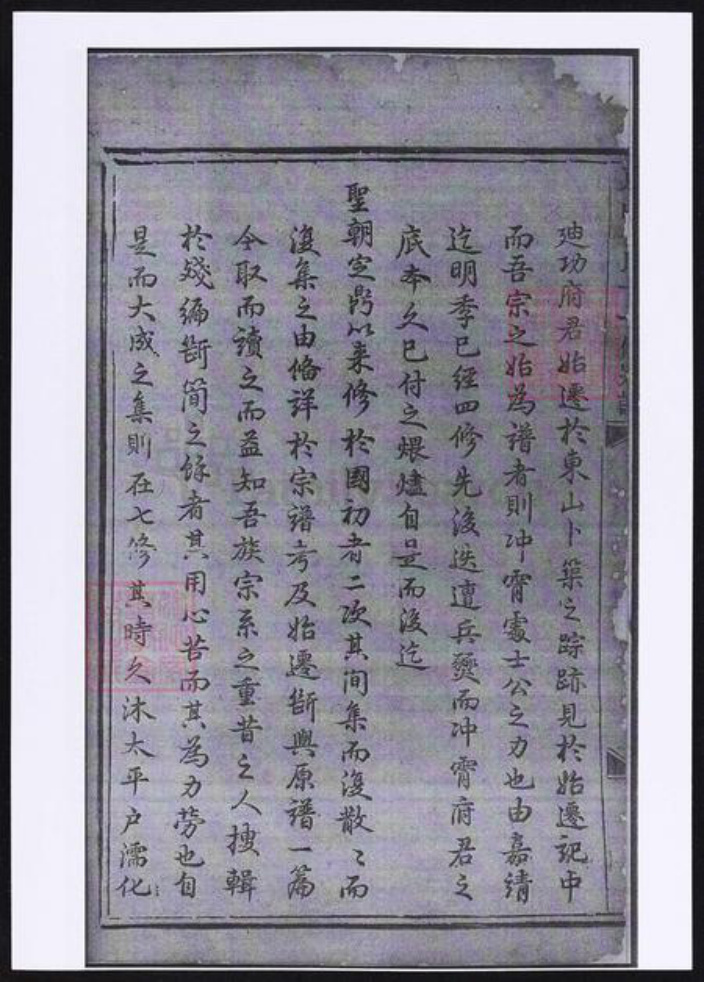 廸功府君始遷於東山卜築之踪跡見於始遷記中
而吾宗之始為譜者則冲霄處士公之力也由嘉靖
迄明季已經四修先後迭遭兵燹而冲霄府君之
底本久已付之煨燼自是而後迄
聖朝定鼎以来修於國初者二次其间集而復散〻而
復集之由脩詳於宗譜考及始遷斷與原譜一篇
令取而讀之而益知吾族宗系之重昔之人搜輯
於殘編斷簡之餘者其用心苦而其為力勞也自
是而大成之集則在七修其時久沐太平户濡化